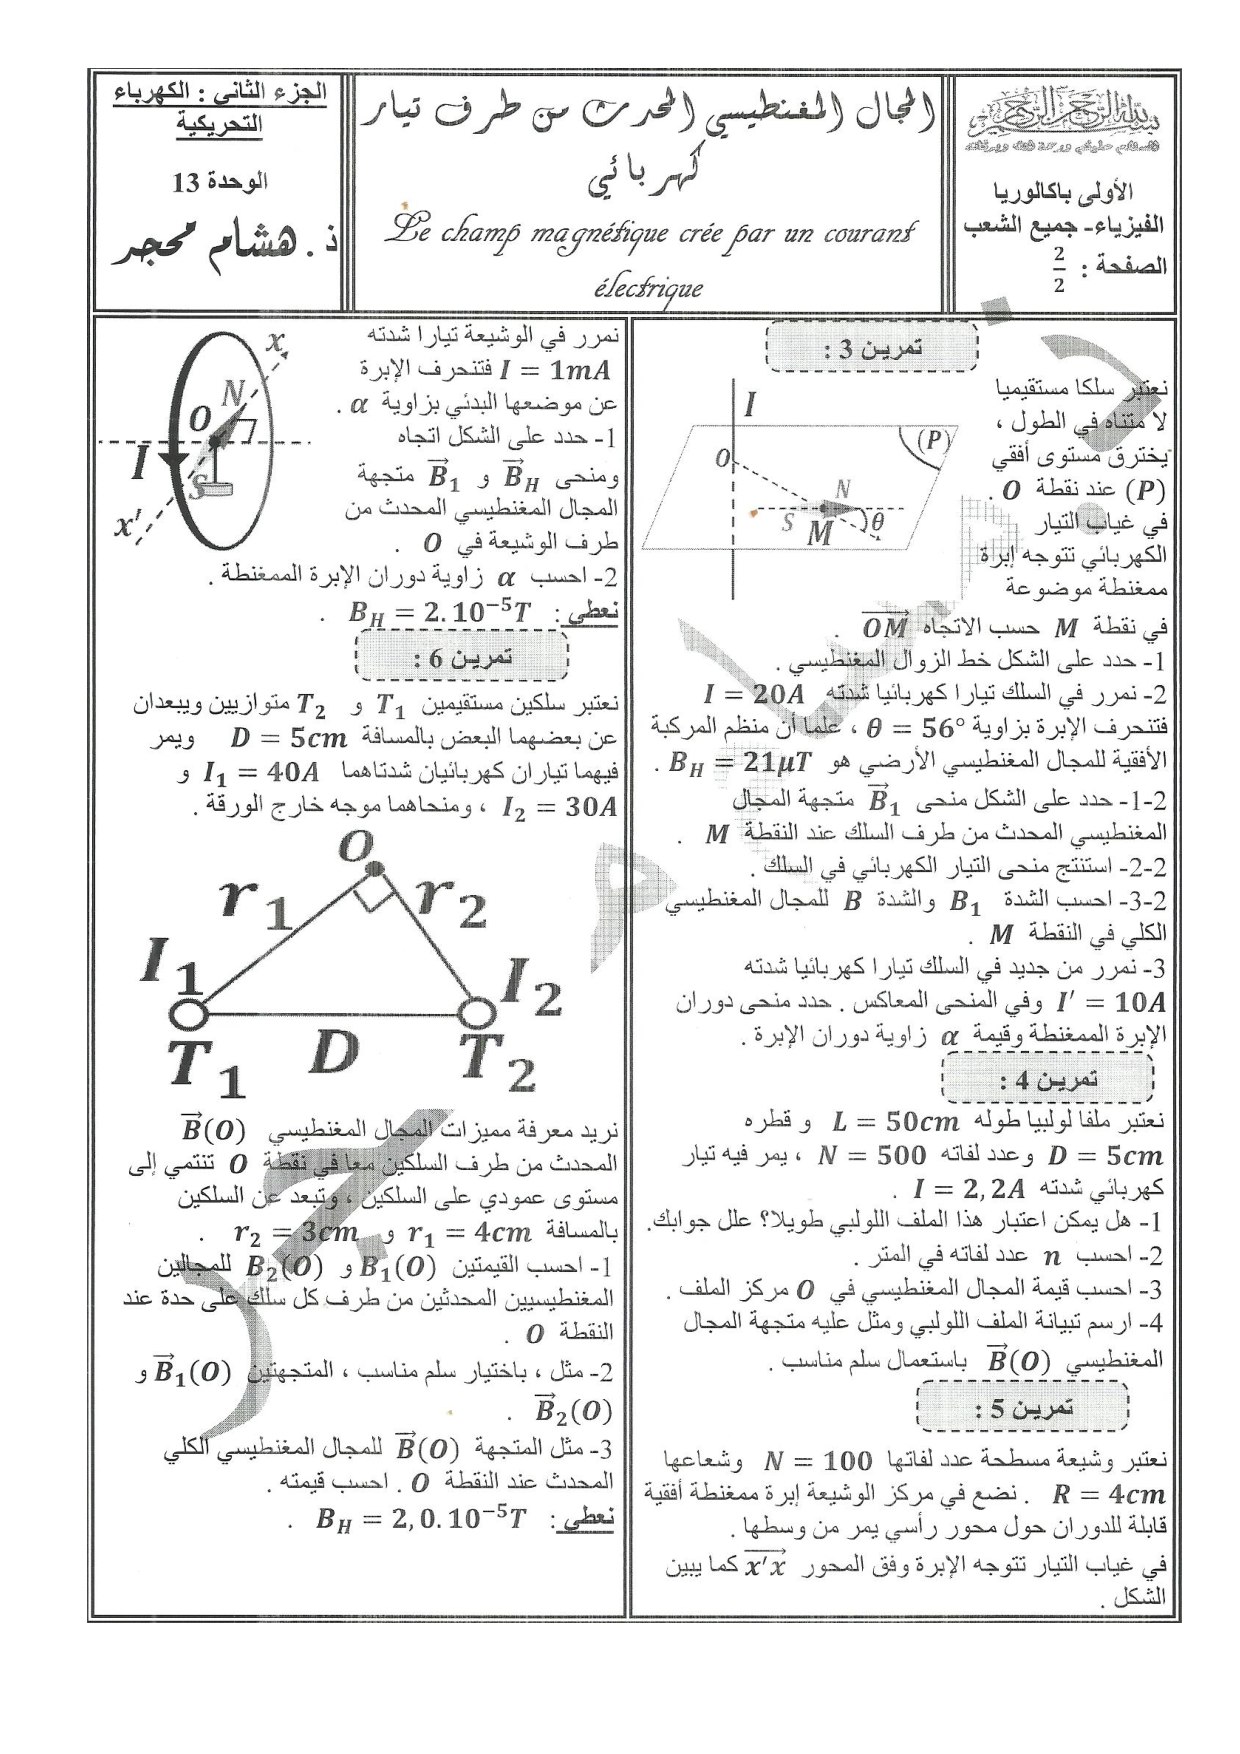 الأولى باكالوريا
الفيزياء- جميع الشعب
الصفحة : 2/2
المجال المغنطيسي المحدث من طرف تيار
كهربائي
Le champ magnétique crée par un courant
électrique
الجزء الثاني : الكهرباء
التحريكية
الوحدة 13
ذ. هشام محجر
تمرين 3 :
نعتبر سلكا مستقيميا
لا متناه في الطول ،
يخترق مستوى أفقي
(P) عند نقطة O .
في غياب التيار
الكهربائي تتوجه إبرة
ممغنطة موضوعة
I
(P)
O
N
S
M
θ
في نقطة M حسب الاتجاه OM .
1- حدد على الشكل خط الزوال المغنطيسي .
2- نمرر في السلك تيارا كهربائيا شدته I = 20A
فتنحرف الإبرة بزاوية θ = 56° ، علما أن منظم المركبة
الأفقية للمجال المغنطيسي الأرضي هو B_H = 21μT .
2-1- حدد على الشكل منحى B⃗₁ متجهة المجال
المغنطيسي المحدث من طرف السلك عند النقطة M .
2-2- استنتج منحى التيار الكهربائي في السلك .
2-3- احسب الشدة B₁ والشدة B للمجال المغنطيسي
الكلي في النقطة M .
3- نمرر من جديد في السلك تيارا كهربائيا شدته
I′ = 10A وفي المنحى المعاكس . حدد منحى دوران
الإبرة الممغنطة وقيمة α زاوية دوران الإبرة .
تمرين 4 :
نعتبر ملفا لولبيا طوله L = 50cm و قطره
D = 5cm وعدد لفاته N = 500 ، يمر فيه تيار
كهربائي شدته I = 2,2A .
1- هل يمكن اعتبار هذا الملف اللولبي طويلا؟ علل جوابك.
2- احسب n عدد لفاته في المتر .
3- احسب قيمة المجال المغنطيسي في O مركز الملف .
4- ارسم تبيانة الملف اللولبي ومثل عليه متجهة المجال
المغنطيسي B⃗(O) باستعمال سلم مناسب .
تمرين 5 :
نعتبر وشيعة مسطحة عدد لفاتها N = 100 وشعاعها
R = 4cm . نضع في مركز الوشيعة إبرة ممغنطة أفقية
قابلة للدوران حول محور رأسي يمر من وسطها .
في غياب التيار تتوجه الإبرة وفق المحور x′x كما يبين
الشكل .
نمرر في الوشيعة تيارا شدته
I = 1mA فتنحرف الإبرة
عن موضعها البدئي بزاوية α .
1- حدد على الشكل اتجاه
ومنحى B⃗_H و B⃗₁ متجهة
المجال المغنطيسي المحدث من
طرف الوشيعة في O .
x
N
O
I
S
x′
2- احسب α زاوية دوران الإبرة الممغنطة .
نعطي : B_H = 2.10⁻⁵T .
تمرين 6 :
نعتبر سلكين مستقيمين T₁ و T₂ متوازيين ويبعدان
عن بعضهما البعض بالمسافة D = 5cm ويمر
فيهما تياران كهربائيان شدتاهما I₁ = 40A و
I₂ = 30A ، ومنحاهما موجه خارج الورقة .
O
r₁ r₂
I₁ I₂
T₁ D T₂
نريد معرفة مميزات المجال المغنطيسي B⃗(O)
المحدث من طرف السلكين معا في نقطة O تنتمي إلى
مستوى عمودي على السلكين ، وتبعد عن السلكين
بالمسافة r₁ = 4cm و r₂ = 3cm .
1- احسب القيمتين B₁(O) و B₂(O) للمجالين
المغنطيسيين المحدثين من طرف كل سلك على حدة عند
النقطة O .
2- مثل ، باختيار سلم مناسب ، المتجهتين B⃗₁(O) و
B⃗₂(O) .
3- مثل المتجهة B⃗(O) للمجال المغنطيسي الكلي
المحدث عند النقطة O . احسب قيمته .
نعطي : B_H = 2,0.10⁻⁵T .